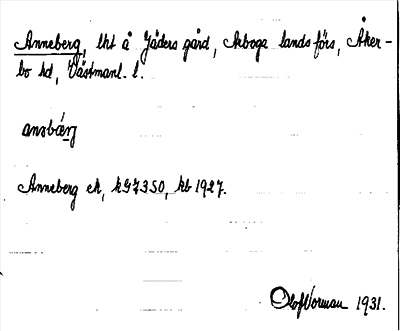 Anneberg, lht å Jäders gård, Arboga landsförs, Åker-
bo hd, Västmanl. l.
Anneberg ek, kG7350, kb 1927.
Olof Vorman 1931.